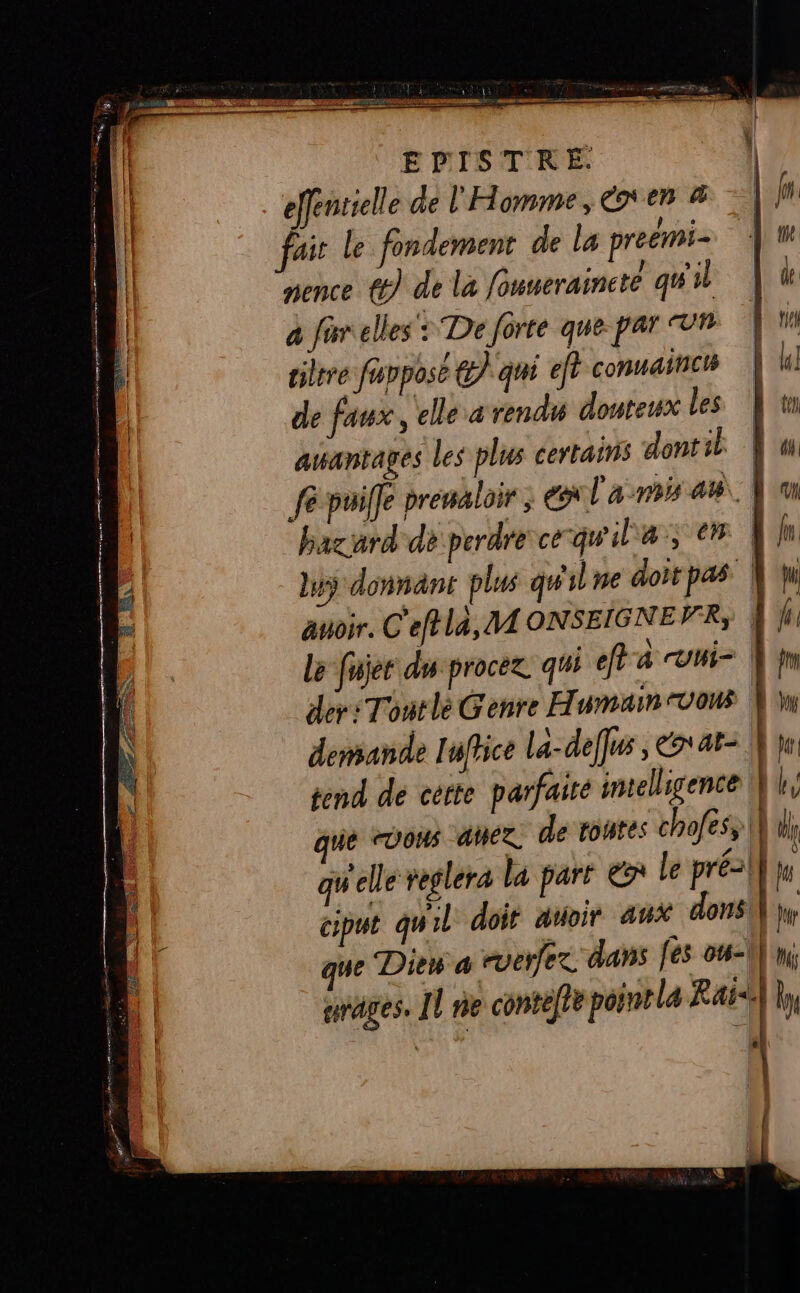 EPISTRE.
eſſentielle de l'Homme, & en a
fait le fondement de la preémi-
nence & de la ſouueraineté qu'il
a ſur elles : De ſorte que par vn
tiltre ſuppoſé & qui eſt conuaincu
de faux, elle a rendu douteux les
auantages les plus certains dont il
ſe puiſſe preualoir ; & l'a mis au
hazard de perdre ce qu'il a, en
luy donnant plus qu'il ne doit pas
auoir. C'eſt là, MONSEIGNEVR,
le ſujet du procez qui eſt à vui-
der : Tout le Genre Humain vous
demande Iuſtice là-deſſus, & at-
tend de cette parfaite intelligence
que vous auez de toutes choſes,
qu'elle reglera la part & le pré-
ciput qu'il doit auoir aux dons
que Dieu a verſez dans ſes ou-
urages. Il ne conteſte point la Rai-